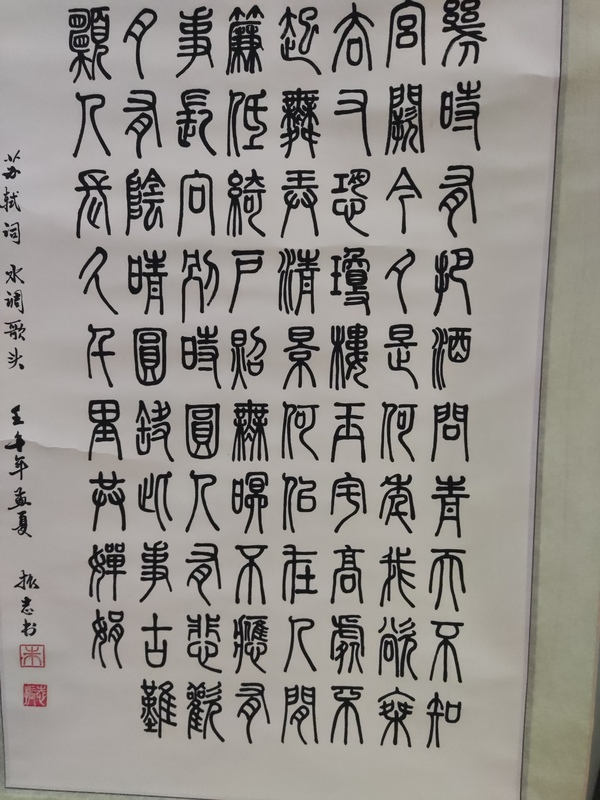 幾時有把酒問青天不知
宮闕今夕是何年我欲乘
去又恐瓊樓玉宇高處不
起舞弄清景何似在人間
簾低綺戶照無眠不應有
事長向別時圓人有悲歡
月有陰晴圓缺此事古難
願人長久千里共嬋娟
苏轼词 水调歌头 壬午年孟夏 振书
朱